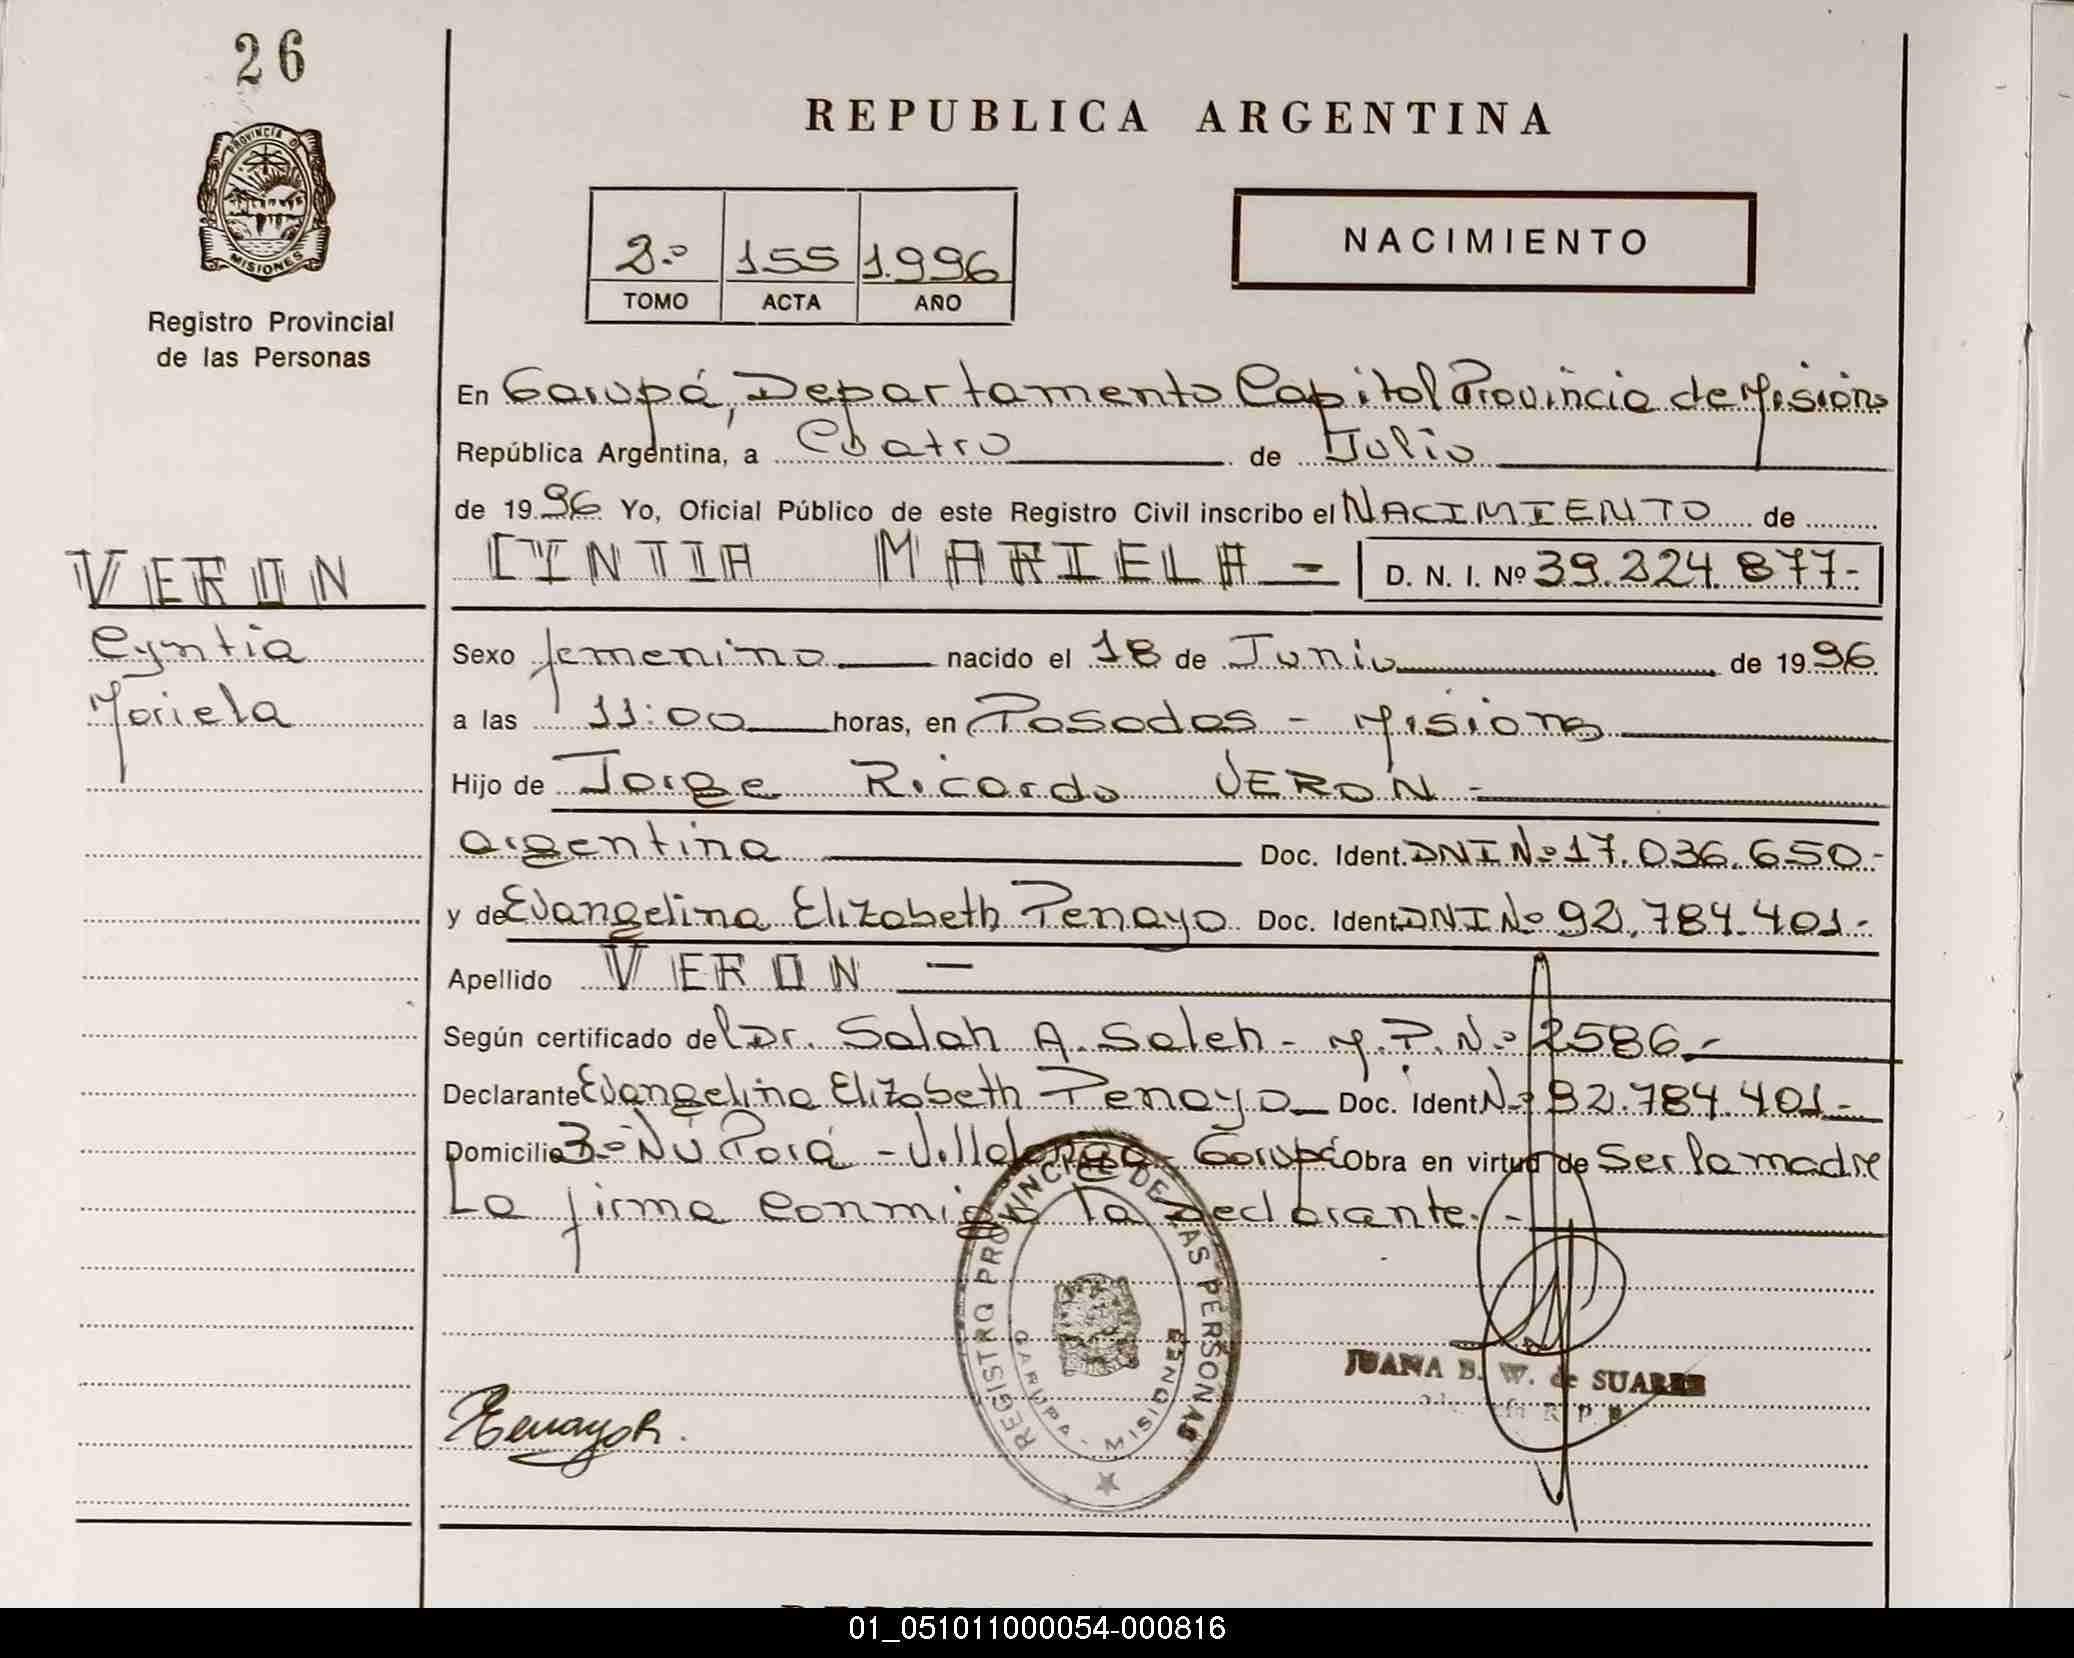 26
REPUBLICA ARGENTINA
PROVINCIA DE
MISIONES
Registro Provincial
de las Personas
2.º 155 1.996
TOMO ACTA AÑO
NACIMIENTO
En Garupá, Departamento Capital Provincia de Misiones
República Argentina, a Cuatro de Julio
de 1996 Yo, Oficial Público de este Registro Civil inscribo el NACIMIENTO de
CYNTIA MARIELA - D. N. I. Nº 39.224.877-
VERON
Cyntia
Mariela
Sexo femenino nacido el 18 de Junio de 1996
a las 11:00 horas, en Posadas - Misiones
Hijo de Jorge Ricardo VERON -
argentina Doc. Ident. DNI Nº 17.036.650-
y de Evangelina Elizabeth Penayo Doc. Ident. DNI Nº 92.784.401-
Apellido VERON -
Según certificado del Dr. Salah A. Saleh - M.P.N.º 2586.-
Declarante Evangelina Elizabeth Penayo Doc. Ident Nº 92.784.401-
Domicilio Bº Ñú Porá - Villalonga - Garupá Obra en virtud de Ser la madre
La firma conmigo la declarante. -
REGISTRO PROVINCIAL DE LAS PERSONAS
GARUPA - MISIONES
JUANA B. W. de SUAREZ
R. P. P.
Penayo
01_051011000054-000816